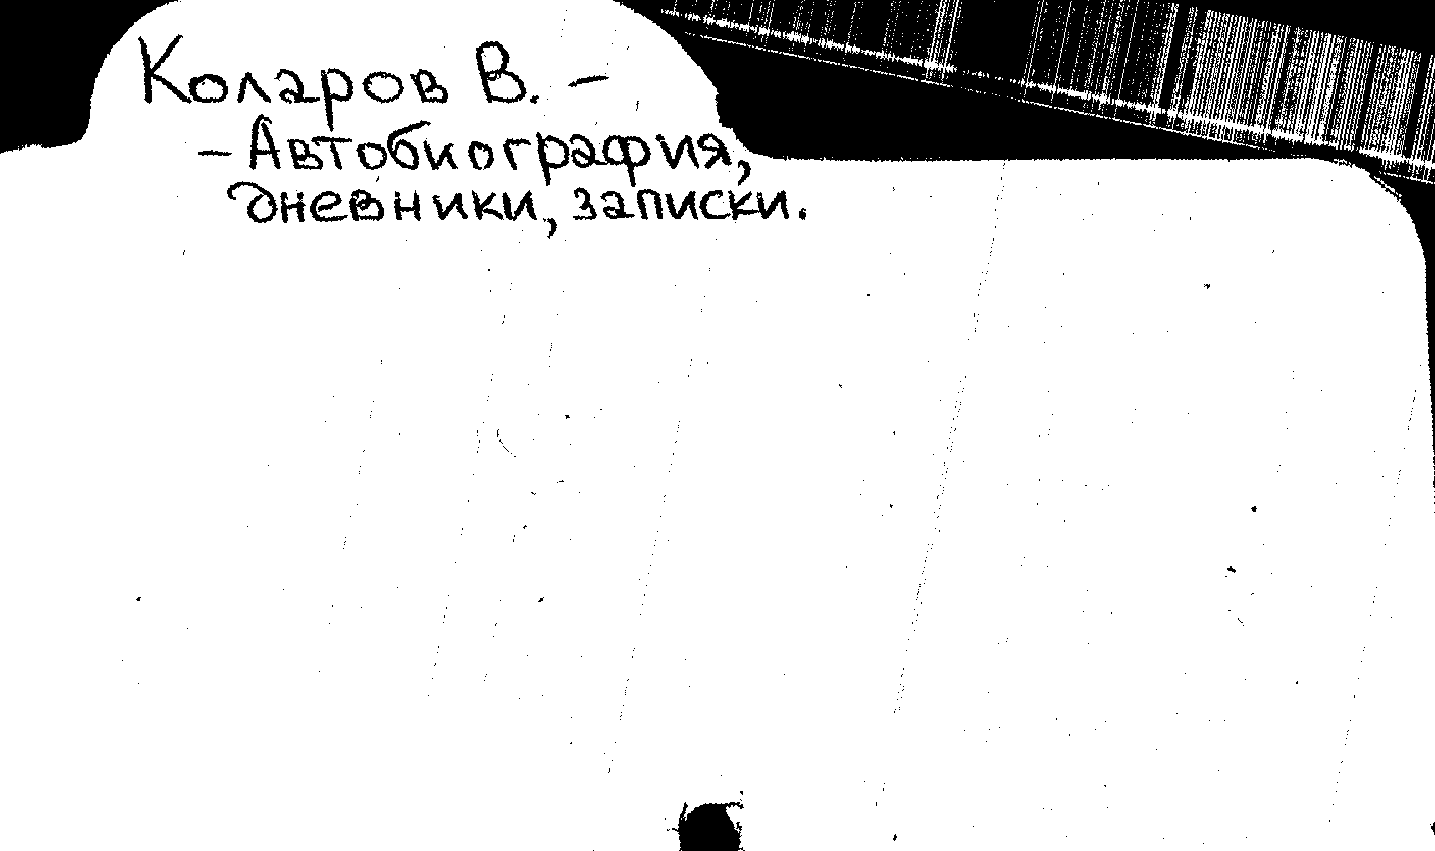 Коларов В. –
– Автобиография,
дневники, записки.